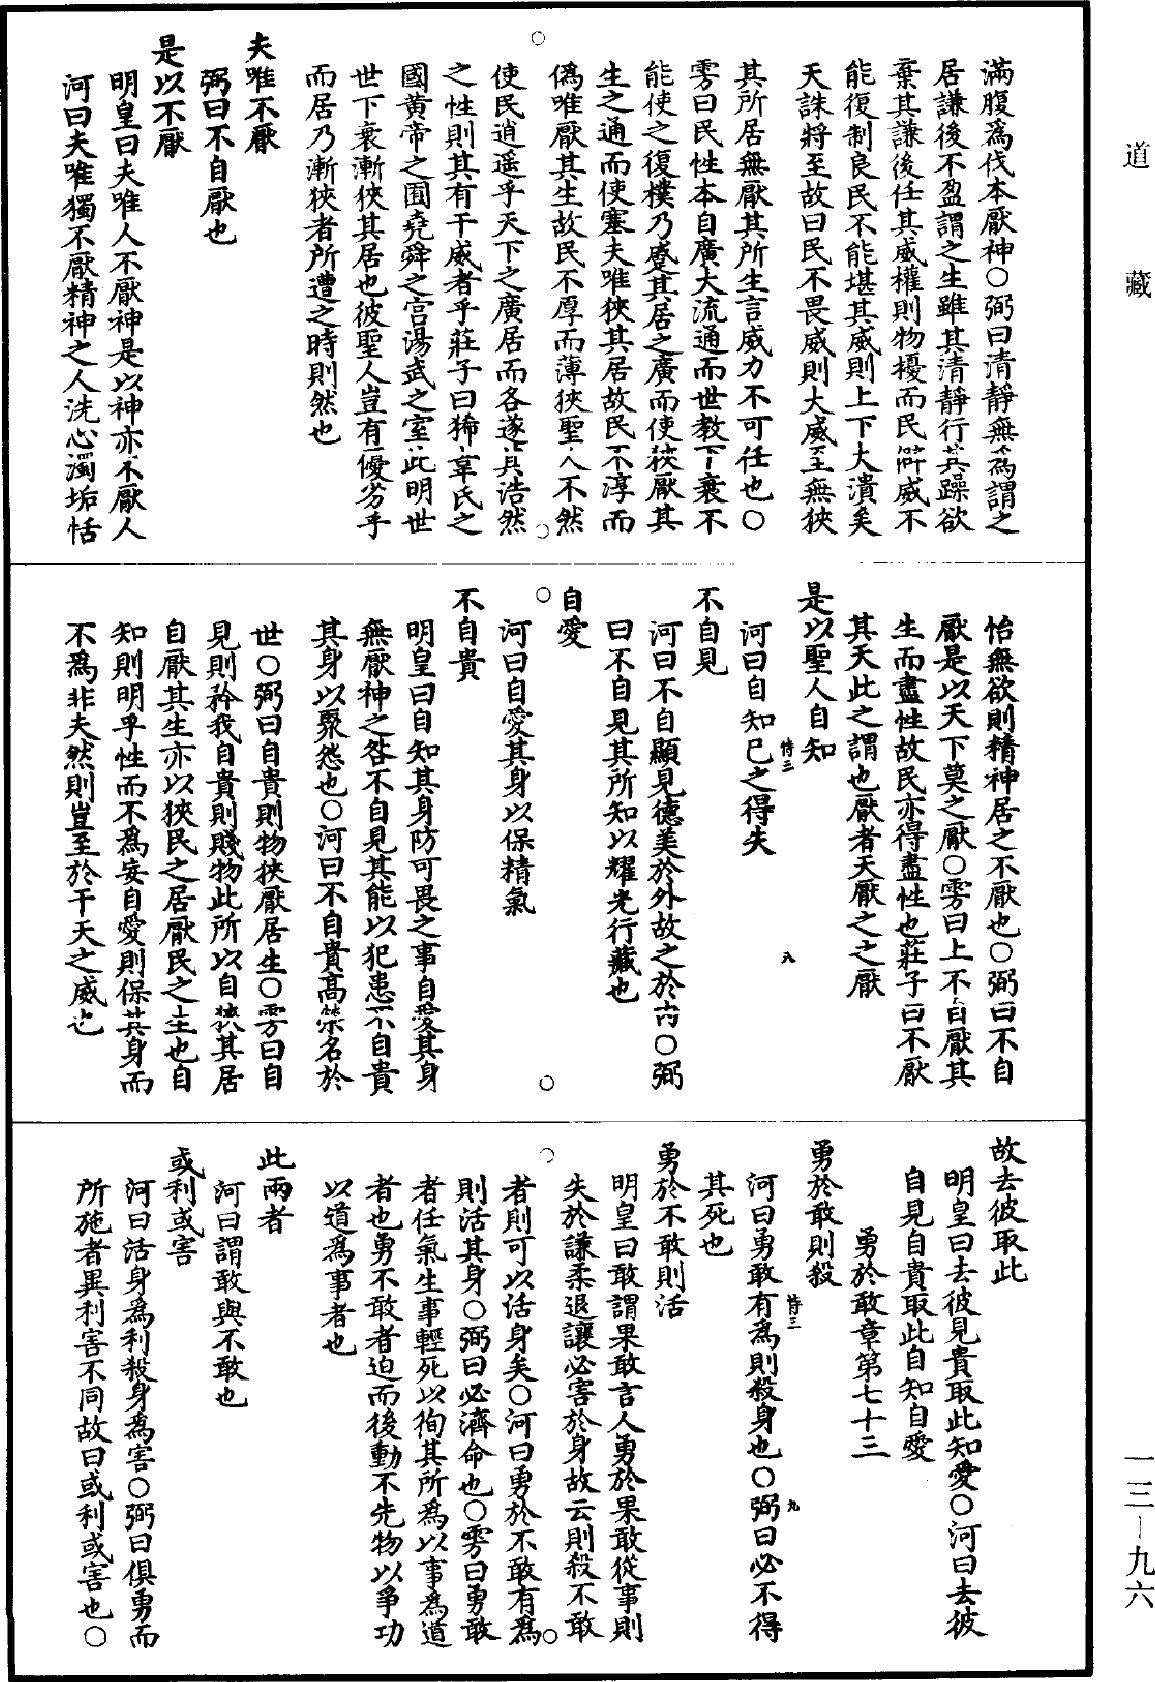 道藏
滿腹爲伐本厭神○弼曰清靜無爲謂之
居謙後不盈謂之生離其清靜行其躁欲
棄其謙後任其威權則物擾而民僻威不
能復制良民不能堪其威則上下大潰矣
天誅將至故曰民不畏威則大威至無狹
其所居無厭其所生言威力不可任也○
雱曰民性本自廣大流通而世教下衰不
能使之復樸乃蹙其居之廣而使狹厭其
生之通而使塞夫唯狹其居故民不淳而
僞唯厭其生故民不厚而薄狹聖人不然
使民逍遥乎天下之廣居而各遂其浩然
之性則其有干威者乎莊子曰狶韋氏之
國黃帝之囿堯舜之宮湯武之室此明世
世下衰漸狹其居也彼聖人豈有優劣乎
而居乃漸狹者所遭之時則然也
夫唯不厭
弼曰不自厭也
是以不厭
明皇曰夫唯人不厭神是以神亦不厭人
河曰夫唯獨不厭精神之人洗心濁垢恬
怡無欲則精神居之不厭也○弼曰不自
厭是以天下莫之厭○雱曰上不自厭其
生而盡性故民亦得盡性也莊子曰不厭
其天此之謂也厭者天厭之之厭
是以聖人自知
河曰自知已之得失
不自見
河曰不自顯見德美於外故之於內○弼
曰不自見其所知以耀光行藏也
自愛
河曰自愛其身以保精氣
不自貴
明皇曰自知其身防可畏之事自愛其身
無厭神之咎不自見其能以犯患不自貴
其身以聚怨也○河曰不自貴高榮名於
世○弼曰自貴則物狹厭居生○雱曰自
見則矜我自貴則賤物此所以自狹其居
自厭其生亦以狹民之居厭民之生也自
知則明乎性而不爲妄自愛則保其身而
不爲非夫然則豈至於干天之威也
故去彼取此
明皇曰去彼見貴取此知愛○河曰去彼
自見自貴取此自知自愛
勇於敢章第七十三
勇於敢則殺
河曰勇敢有爲則殺身也○弼曰必不得
其死也
勇於不敢則活
明皇曰敢謂果敢言人勇於果敢從事則
失於謙柔退讓必害於身故云則殺不敢
者則可以活身矣○河曰勇於不敢有爲
則活其身○弼曰必濟命也○雱曰勇敢
者任氣生事輕死以徇其所爲以事爲道
者也勇不敢者迫而後動不先物以爭功
以道爲事者也
此兩者
河曰謂敢與不敢也
或利或害
河曰活身爲利殺身爲害○弼曰俱勇而
所施者異利害不同故曰或利或害也○
一三-九六